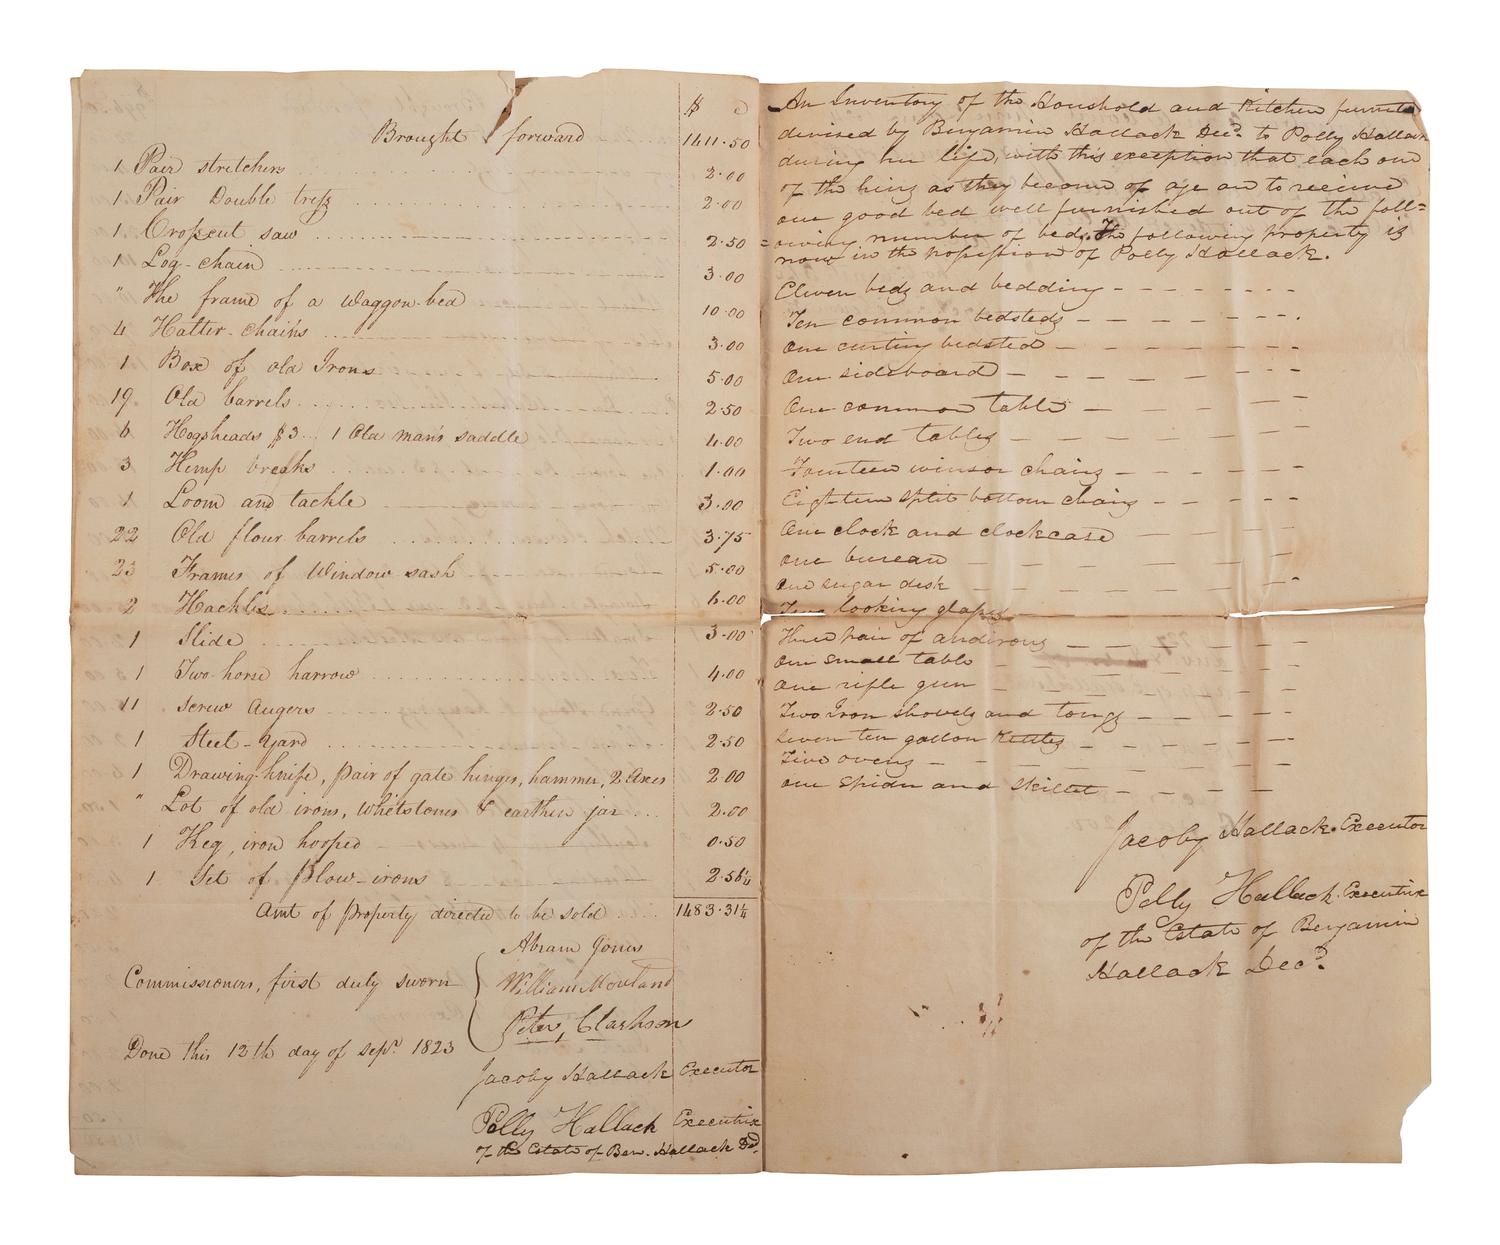 $ C
Brought forward 1411.50
1 Pair stretchers 2.00
1 Pair Double trefs 2.00
1 Crofscut saw 2.50
1 Log-chain 3.00
" The frame of a Waggon-bed 10.00
4 Halter-chains 3.00
1 Box of old Irons 5.00
19 Old barrels 2.50
6 Hogsheads $3 1 Old man's saddle 4.00
3 Hemp breaks 1.00
1 Loom and tackle 3.00
22 Old flour barrels 3.75
23 Frames of Window sash 5.00
2 Hackles 6.00
1 Slide 3.00
1 Two-horse harrow 4.00
11 Screw Augers 2.50
1 Steel-Yard 2.50
1 Drawing-knife, pair of gate hinges, hammer, 2 Axes 2.00
" Lot of old irons, Whetstones & earthen jar 2.00
1 Keg, iron hooped 0.50
1 Set of Plow-irons 2.56¼
Amt of Property directed to be sold 1483.31¼
Abram Jones
Commissioners, first duly sworn William
Peter Clarkson
Done this 12th day of Sepr. 1823
Jacoby Hallack Executor
Polly Hallack Executrix
of the Estate of Ben. Hallack Decd.
An Inventory of the Houshold and Kitchen furnitu
devised by Benjamin Hallack Decd. to Polly Hallack
during her life, with this exception that each one
of the heirs as they become of age are to receive
one good bed well furnished out of the foll=
=owing number of beds. The following property is
now in the pofsefsion of Polly Hallack.
Eleven beds and bedding
Ten common bedsteds
One curting bedsted
One sideboard
One common table
Two end tables
Fourteen winsor chairs
Eighteen split bottom chairs
One clock and clockcase
one bureau
One sugar desk
Two looking glafses
Three pair of andirons
One small table
One rifle gun
Two Iron shovels and tongs
Seven ten gallon Kettles
Five ovens
one spider and skillet
Jacoby Hallack. Executor
Polly Hallack. Executrix
of the Estate of Benjamin
Hallack Decd.